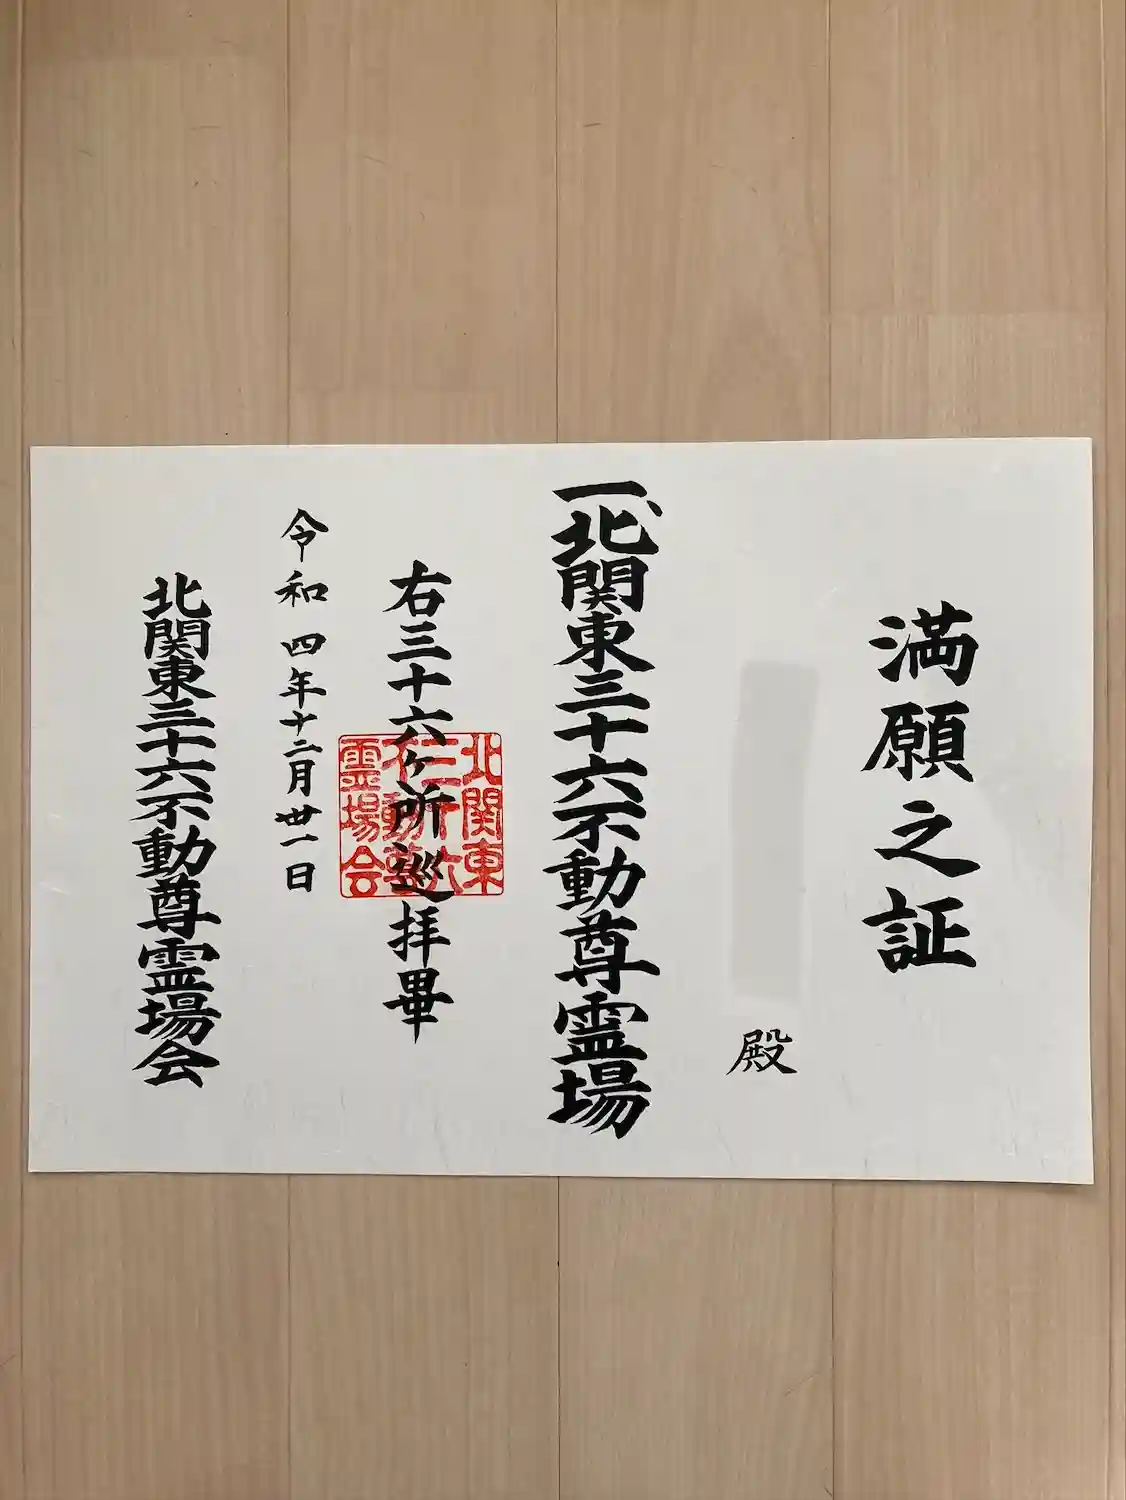 満願之証
殿
一、北関東三十六不動尊霊場
右三十六ヶ所巡拝畢
北関東
三十六
不動尊
霊場会
令和四年十二月丗一日
北関東三十六不動尊霊場会